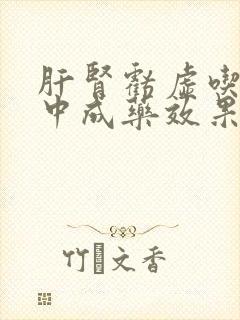 肝腎虧虛喫
中成藥效果
竹文香